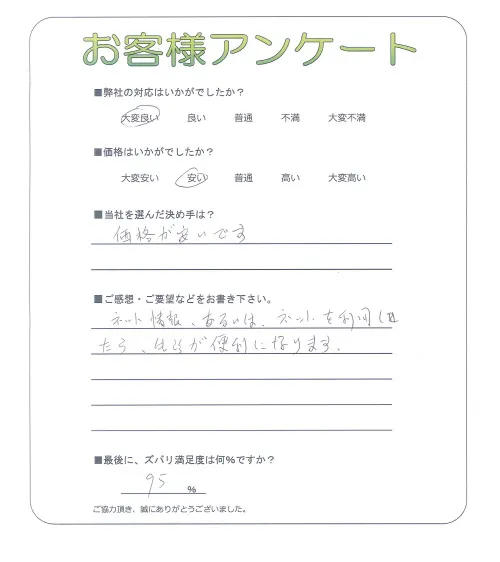 お客様アンケート
■弊社の対応はいかがでしたか?
大変良い 良い 普通 不満 大変不満
■価格はいかがでしたか?
大変安い 安い 普通 高い 大変高い
■当社を選んだ決め手は?
価格が安いです
■ご感想・ご要望などをお書き下さい。
ネット情報、あるいは、ネットを利用し
たら、生活が便利になります.
■最後に、ズバリ満足度は何%ですか?
95 %
ご協力頂き、誠にありがとうございました。